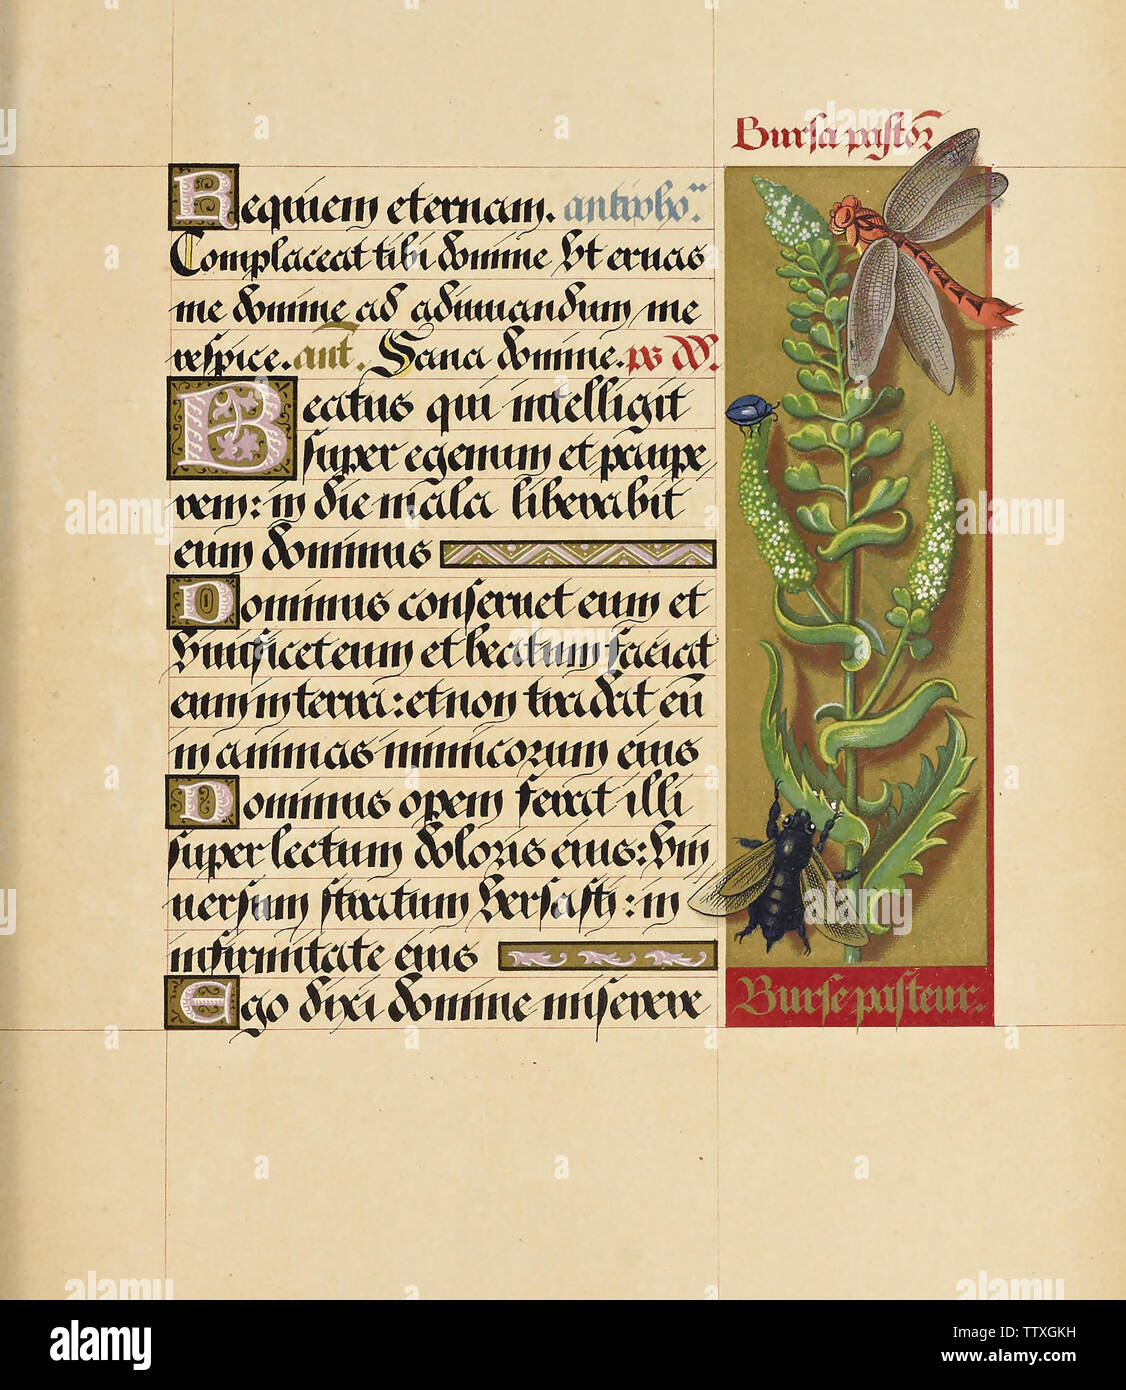 Bursa pastoꝝ
Requiem eternam. antipho''.
Complaceat tibi domine vt eruas
me domine ad adiuuandum me
respice. ant̄. Sana domine. ps dd̄.
Beatus qui intelligit
super egenum et paupe,
rem: in die mala liberabit
eum dominus
Dominus conseruet eum et
viuificet eum et beatum faciat
eum in terra: et non tradat eū
in animas inimicorum eius
Dominus opem ferat illi
super lectum doloris eius: vni
uersum stratum versasti: in
infirmitate eius
Ego dixi domine miserere
Burse pasteur.
alamy
Image ID: TTXGKH
www.alamy.com